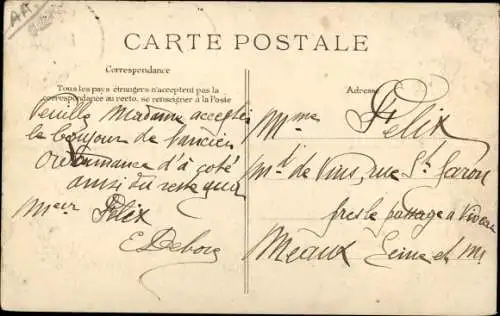 AR
CARTE POSTALE
Correspondance
Tous les pays étrangers n'acceptent pas la
correspondance au recto, se renseigner à la Poste
Veuillez Madame accepter
le bonjour de l'ancien
Ordonnance d'à coté
ainsi du reste que
Mieur Félix
E Debove
Adresse
Mme Felix
Md de Vins, rue St
près le passage à
Meaux Seine et Me